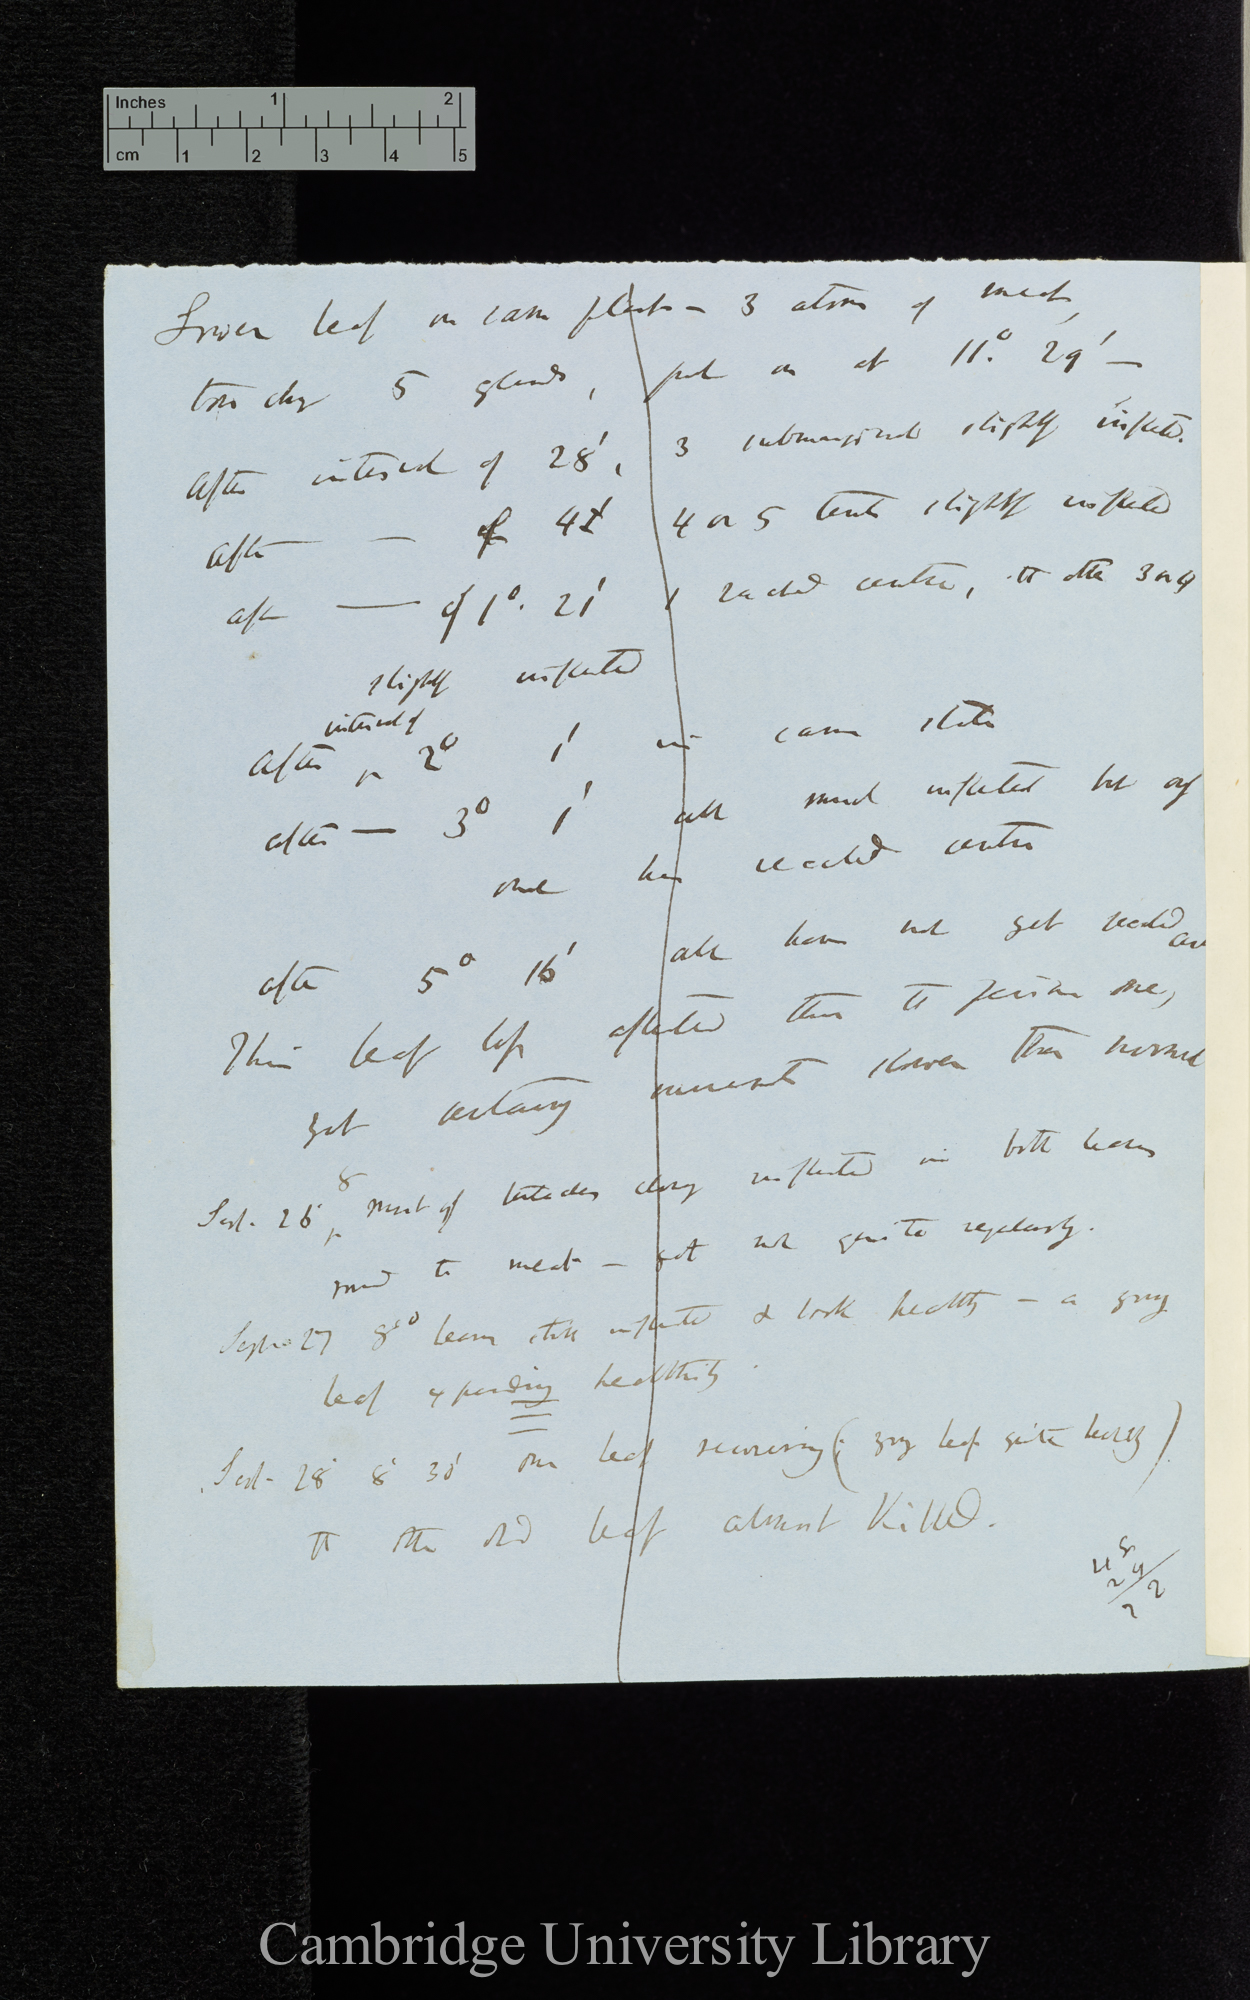 Inches 1 2
cm 1 2 3 4 5
Lower leaf on same plant — 3 atoms of meat,
touching 5 glands, put on at 11.° 29' —
After interval of 28', 3 submarginal slightly inflected.
After — — of 41' 4 or 5 tent slightly inflected
after — of 1°. 21' 1 reached centre, the other 3 or 4
slightly inflected
interval of
After ^ 2° 1' in same state
after — 3° 1' all much inflected but only
one has reached centre
after 5° 16' all have not yet reached cen
This leaf less affected than the former one,
yet certainly movements slower than normal
Sept. 26 ^ 8° most of tentacles closely inflected in both leaves
round the meat — yet not quite regularly.
Sept. 27 8° leaves still inflected & look healthy — a young
leaf expanding healthily.
Sept. 28 8° 30' one leaf recovering (; young leaf quite healthy)
the other old leaf almost killed.
Cambridge University Library